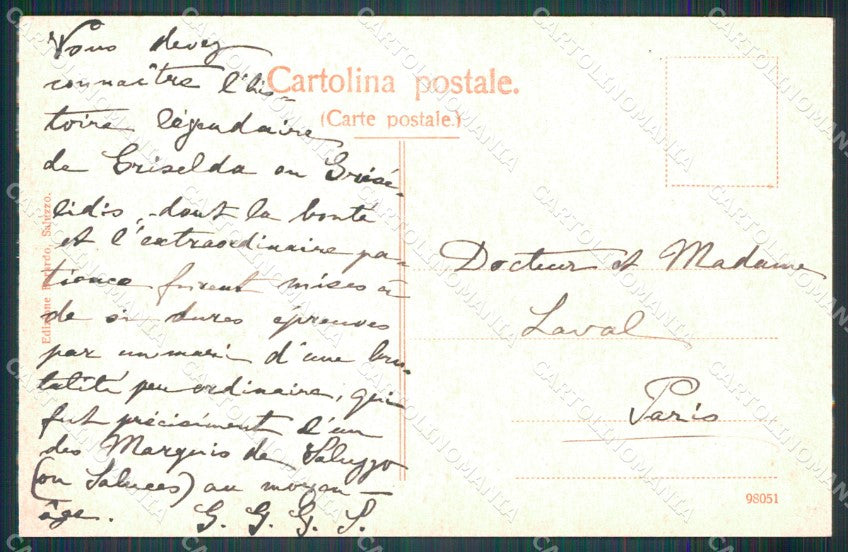 Vous devez
connaître l'his-
toire légendaire
de Griselda ou Grisé-
lidis, dont la bonté
et l'extraordinaire pa-
tience furent mises à
de si dures épreuves
par un mari d'une bru-
talité peu ordinaire, qui
fut précisément l'un
des Marquis de Saluzzo
(ou Saluces) au moyen-
âge. G. G. G. S.
Cartolina postale.
(Carte postale.)
Docteur et Madame
Laval
Paris
98051
Edizione Saluzzo.
CARTOLINOMANIA